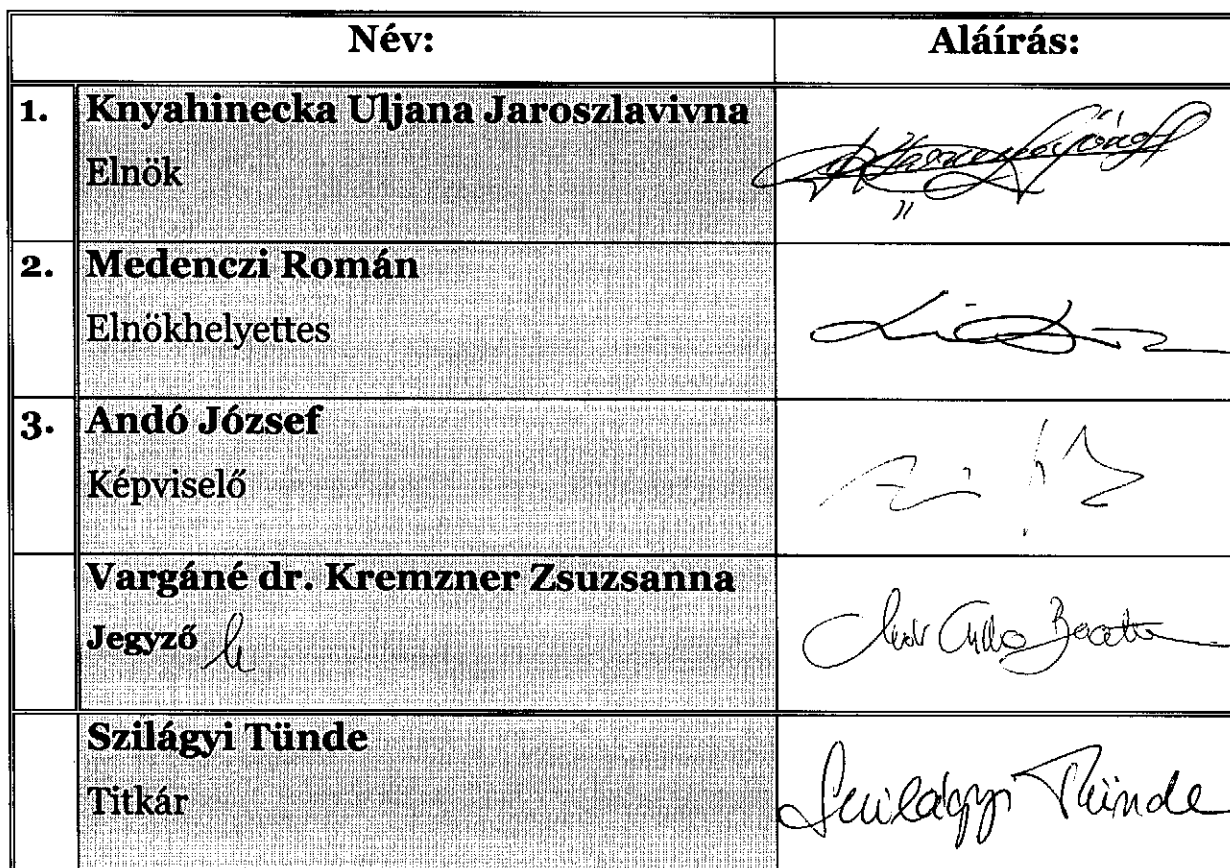 Név: Aláírás:
1. Knyahinecka Uljana Jaroszlavivna
Elnök
2. Medenczi Román
Elnökhelyettes
3. Andó József
Képviselő
Vargáné dr. Kremzner Zsuzsanna
Jegyző h
Szilágyi Tünde
Titkár Szilágyi Tünde